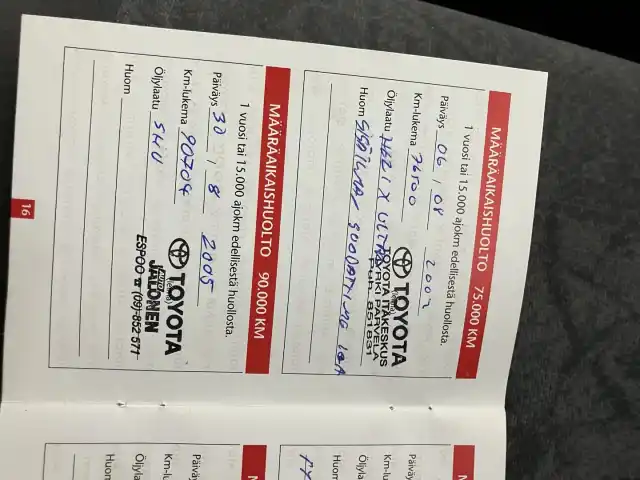 MÄÄRÄAIKAISHUOLTO 75.000 KM
1 vuosi tai 15.000 ajokm edellisestä huollosta.
Päiväys 06 / 08 2007
Km-lukema 76500
Öljylaatu HELIX ULTRA
Huom SISÄILMAN SUODATTIMG
TOYOTA
TOYOTA ITÄKESKUS
JYRKI PARVELA
Puh. 851831
MÄÄRÄAIKAISHUOLTO 90.000 KM
1 vuosi tai 15.000 ajokm edellisestä huollosta.
Päiväys 30 / 8 2005
Km-lukema 90704
Öljylaatu SHU
Huom
TOYOTA
JALONEN
ESPOO ☎ (09)-852 571
16
M
Päiväy
Km-lu
Öljyla
Huom
M
Päiväy
Km-l
Öljyla
Huom